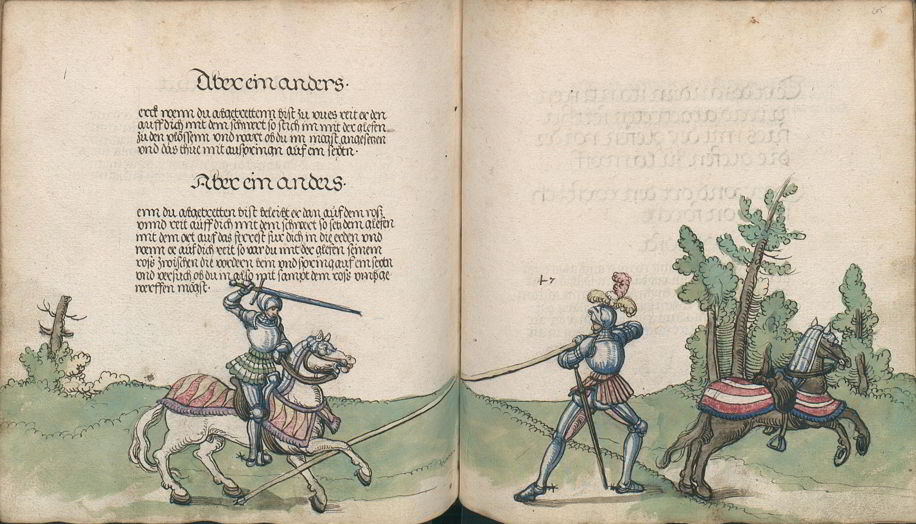 Aber ein anders·
erck wenn du abgetrettenn bist zu vues reit er den
auff dich mit dem schwert so stich im mit der glefen
zu den plössenn vnd wart ob du in magst angesetzen
vnd das thue mit auf ein seytn·
Aber ein anders·
enn du abgetretten bist beleibt er dan auf dem roß
vnnd reit auff dich mit dem schwert so glefen
mit dem ort auf das ferrest für dich in die erden vnd
wenn er auf dich reit so var du mit der glefen seinem
roß zwischen die vordern bein vnd spring auf ein seytn
vnd versuch ob du in also mit sampt dem roß vmbge
werffen magst·
47